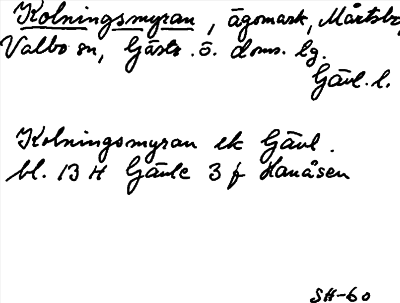 Kolningsmyran, ägomark, Mårtsbo,
Valbo sn, Gästr. ö. doms. lg.
Gävl. l.
Kolningsmyran ek Gävl.
bl. 13 H Gävle 3 f Hanåsen
SH-60